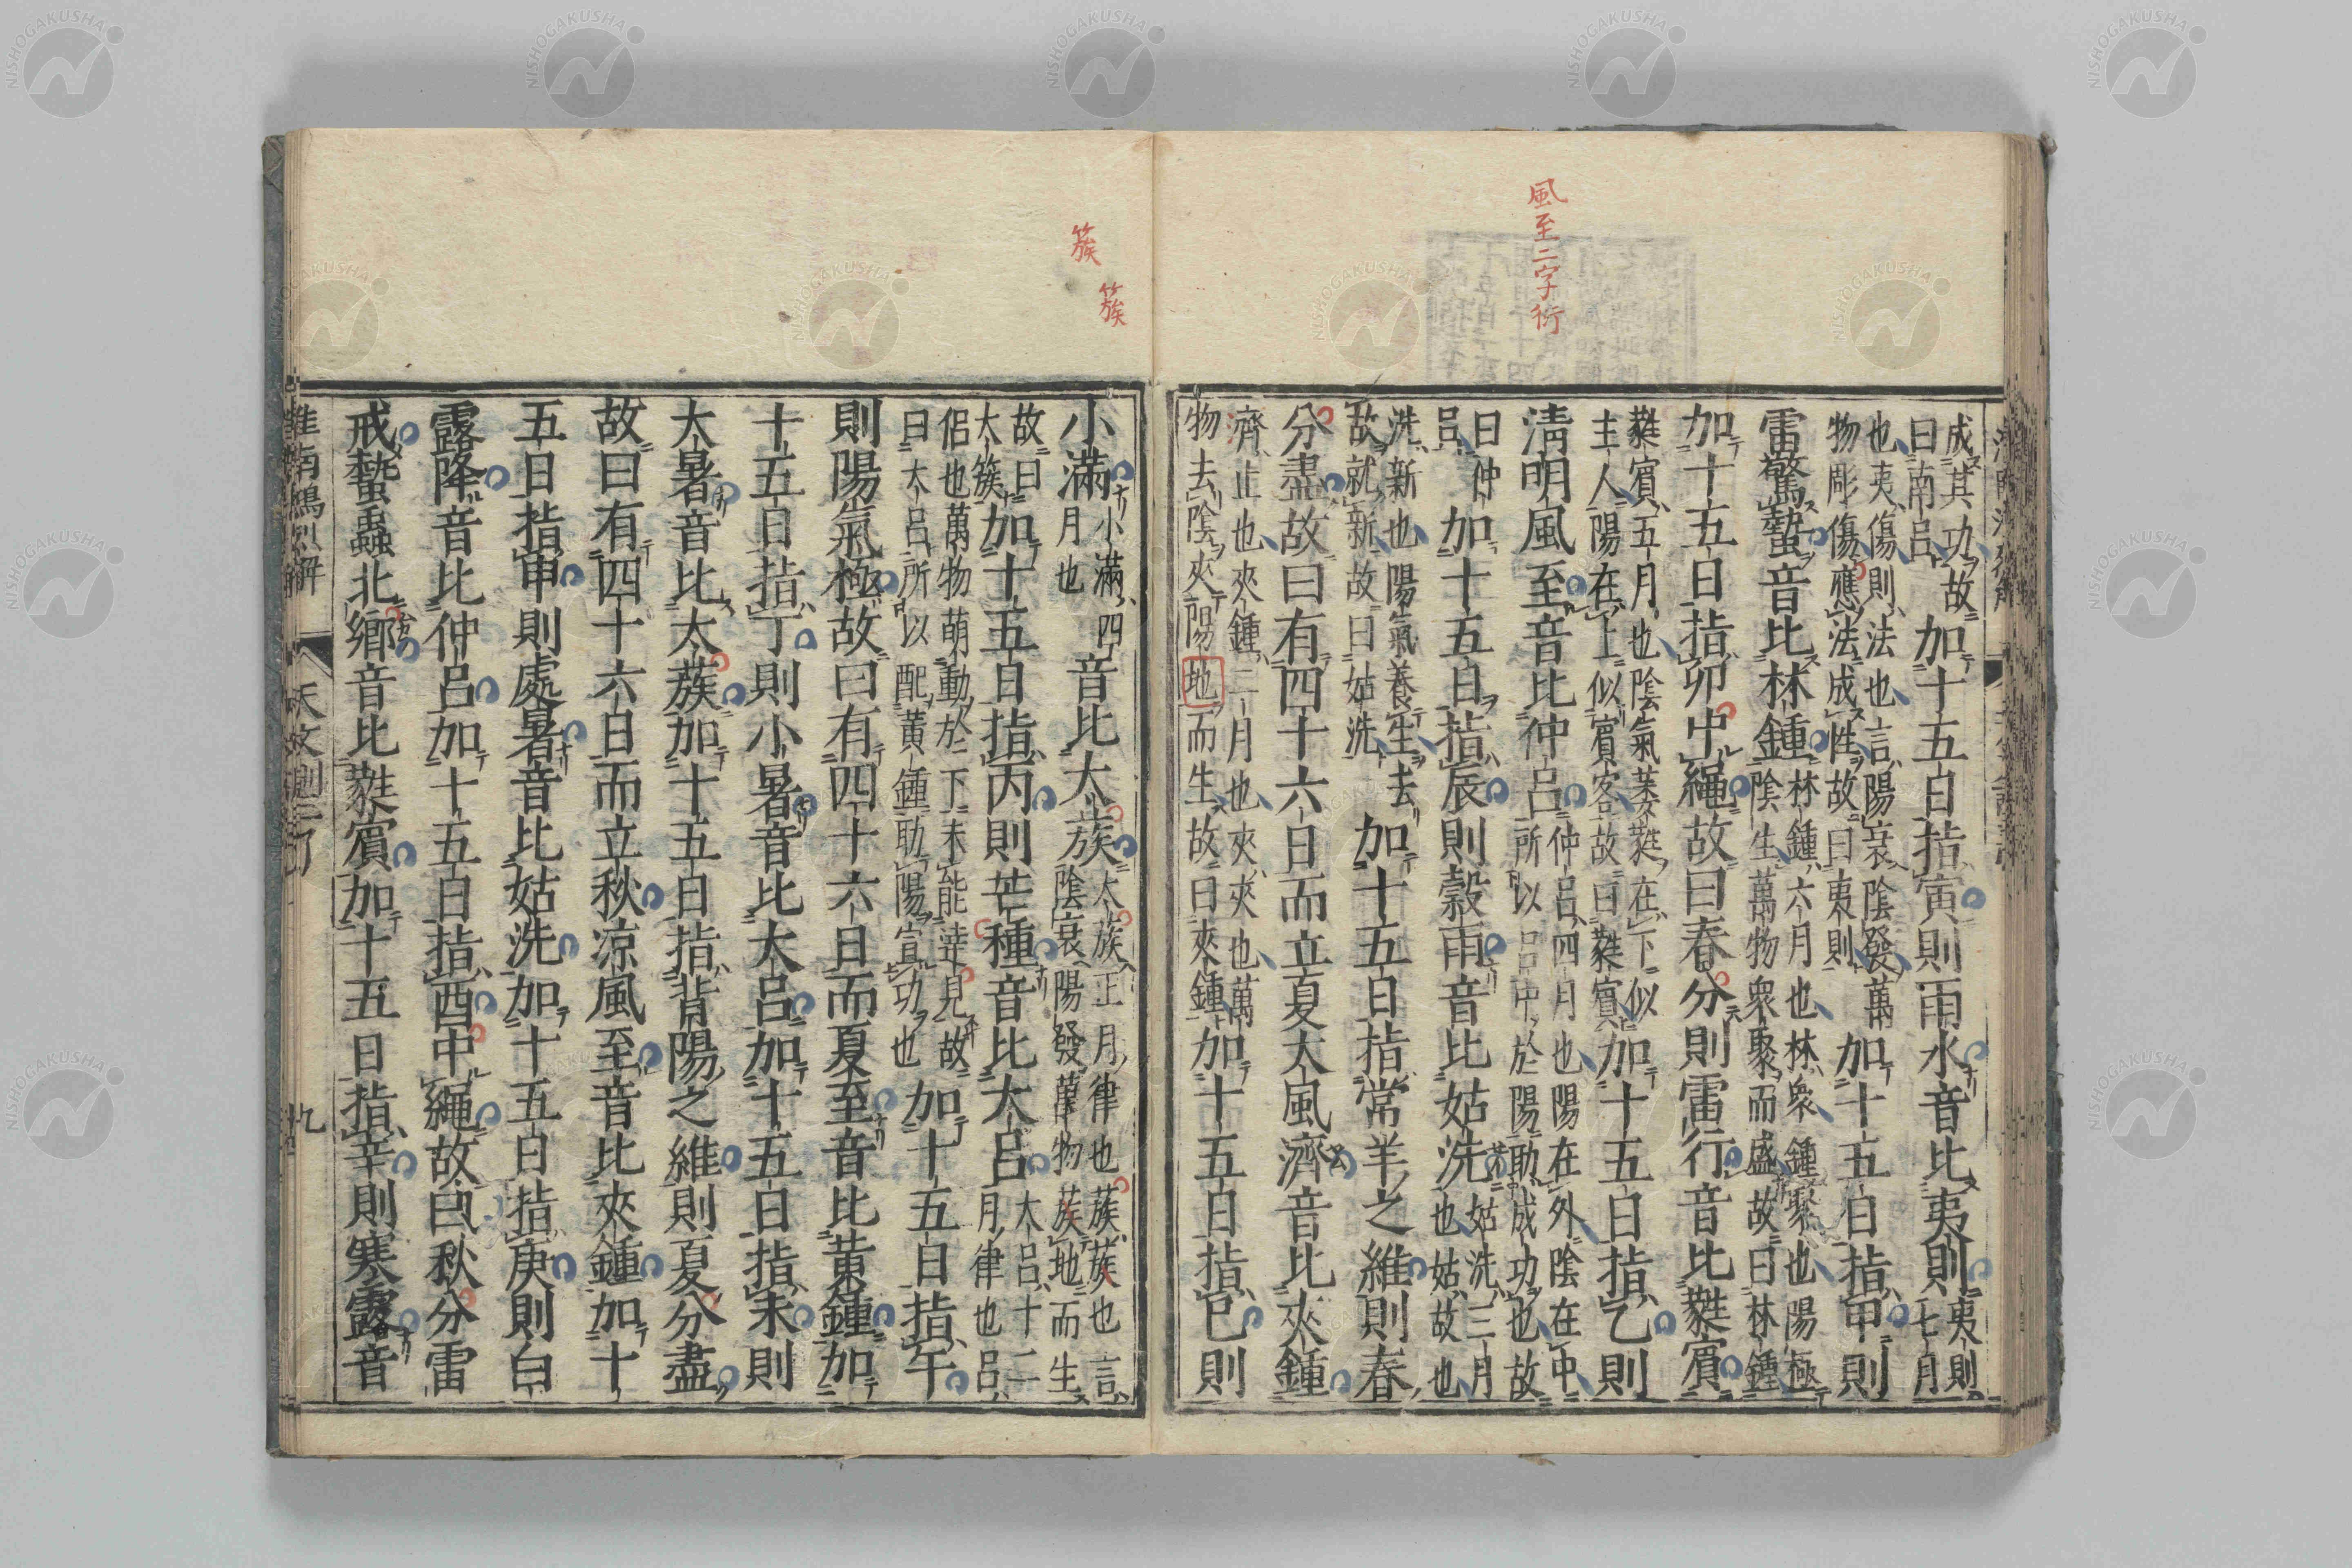 風至二字衍
成其功故
曰南呂
加十五日指寅則雨水音比夷則
夷則
七月
也夷傷則法也言陽衰陰發萬
物彫傷應法成性故曰夷則
加十五日指甲則
雷驚蟄音比林鍾
林鍾六月也林衆鍾聚也陽極
陰生萬物衆聚而盛故曰林鍾
加十五日指卯中繩故曰春分則雷行音比蕤賓
蕤賓五月也陰氣萎蕤在下似
主人陽在上似賓客故曰蕤賓
加十五日指乙則
清明風至音比仲呂
仲呂四月也陽在外陰在中
所以呂中於陽助成功也故
曰仲
呂
加十五日指辰則穀雨音比姑洗
姑洗三月
也姑故也
洗新也陽氣養生去
故就新故曰姑洗
加十五日指常羊之維則春
分盡故曰有四十六日而立夏大風濟音比夾鍾
濟止也夾鍾二月也夾夾也萬
物去陰夾陽地而生故曰夾鍾
加十五日指巳則
簇
簇
小滿
小滿四
月也
音比太蔟
太蔟正月律也蔟蔟也言
陰衰陽發萬物蔟地而生
故曰
太簇
加十五日指丙則芒種音比大呂
大呂十二
月律也呂
侶也萬物萌動於下未能達見故
曰大呂所以配黃鍾助陽宣功也
加十五日指午
則陽氣極故曰有四十六日而夏至音比黃鍾加
十五日指丁則小暑音比大呂加十五日指未則
大暑音比太蔟加十五日指背陽之維則夏分盡
故曰有四十六日而立秋涼風至音比夾鍾加十
五日指申則處暑音比姑洗加十五日指庚則白
露降音比仲呂加十五日指酉中繩故曰秋分雷
戒蟄蟲北鄉音比蕤賓加十五日指辛則寒露音
淮南鴻烈解
天文訓三
九